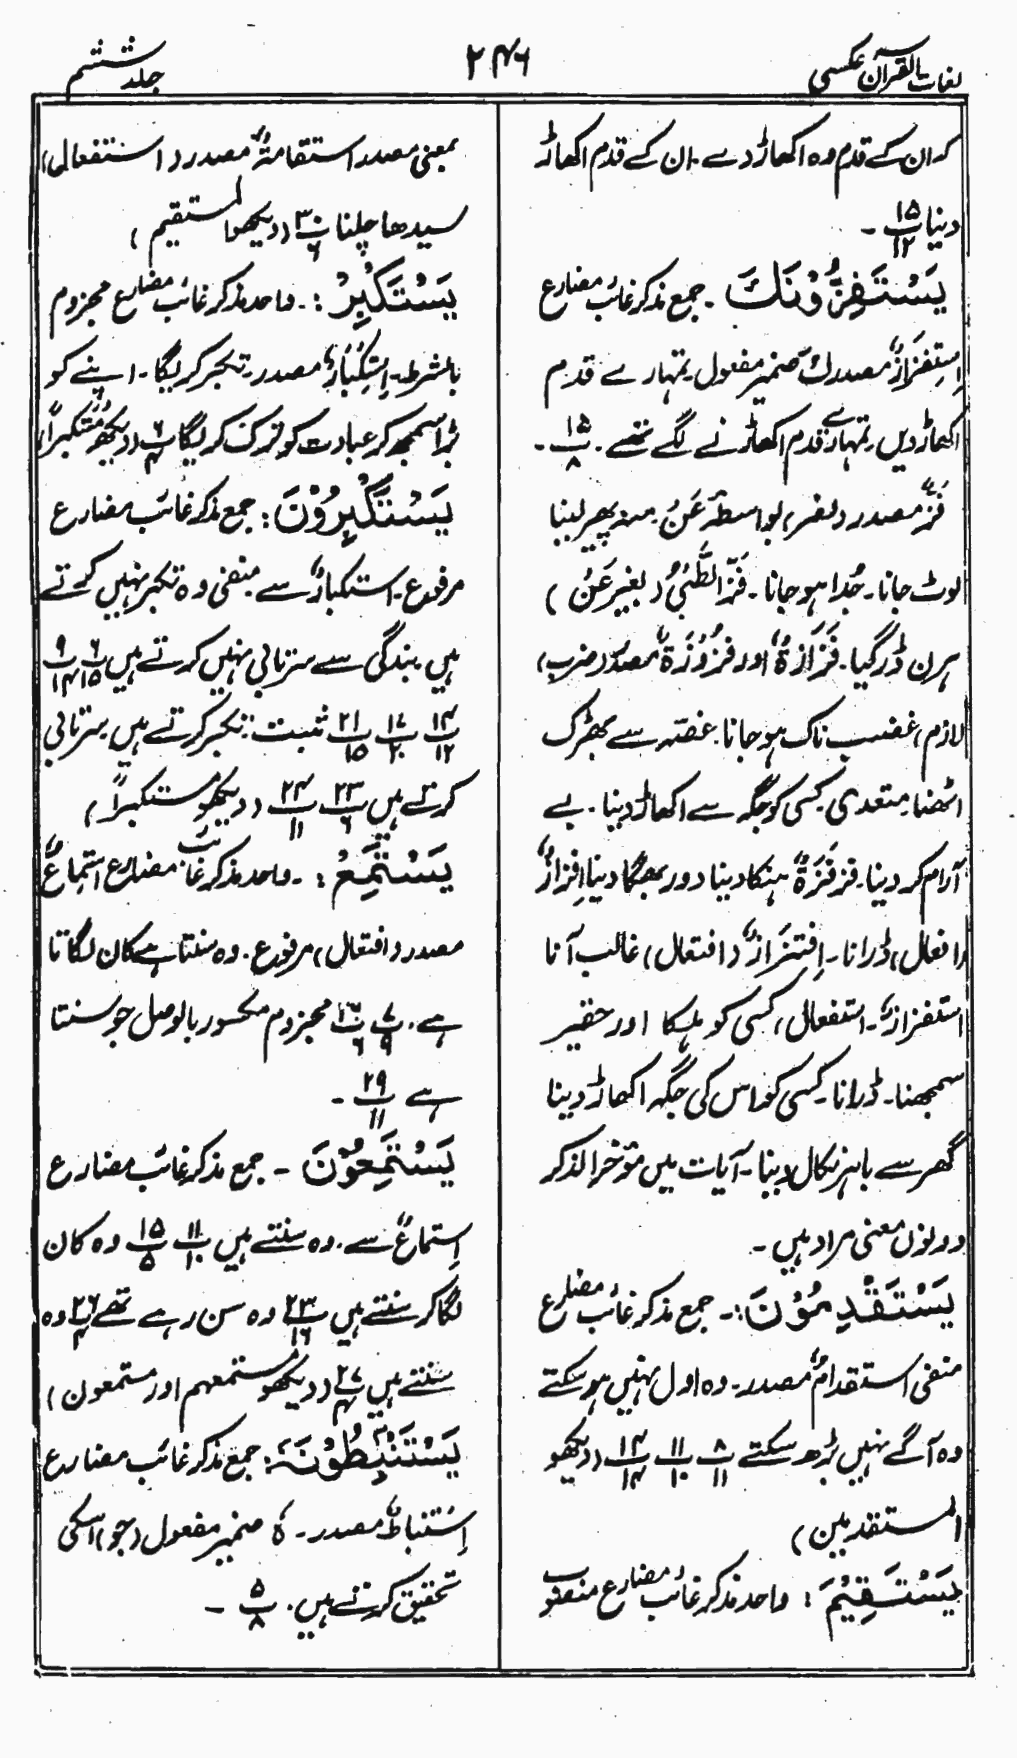 لغات القرآن عکسی
۲۴۶
جلد ششم
کہ ان کے قدم وہ اکھاڑ دے۔ ان کے قدم اکھاڑ
دینا ۱۵/۱۲ ۔
یَسْتَفِزُّوْنَكَ ۔ جمع مذکر غائب مضارع
اِستِفزَازٌ مصدر كَ ضمیر مفعول۔ تمہارے قدم
اکھاڑ دیں۔ تمہارے قدم اکھاڑنے لگے تھے ۔ ۱۵/۸ ۔
فَزٌّ مصدر (نصر) بواسطہ عَنْ منہ پھیر لینا
لوٹ جانا۔ جُدا ہو جانا ۔ فَزَّ الظَّبْیُ (بغیر عَنْ)
ہرن ڈر گیا۔ فَزَازَةٌ اور فُزُوْزَةٌ مصدر (ضرب)
لازم، غضب ناک ہو جانا۔ غصّہ سے بھڑک
اٹھنا۔ متعدی کسی کو جگہ سے اکھاڑ دینا ۔ بے
آرام کر دینا۔ فَزفَزَةٌ ہنکا دینا دور بھگا دینا اِفزازٌ
(افعال) ڈرانا۔ اِفتِزَازٌ (افتعال) غالب آنا
استفزازٌ۔ استفعال، کسی کو ہلکا اور حقیر
سمجھنا۔ ڈرانا۔ کسی کو اس کی جگہ اکھاڑ دینا
گھر سے باہر نکال دینا۔ آیات میں مؤخر الذکر
دونوں معنی مراد ہیں ۔
یَسْتَقْدِمُوْنَ :۔ جمع مذکر غائب مضارع
منفی استقدامٌ مصدر۔ وہ اول نہیں ہو سکتے
وہ آگے نہیں بڑھ سکتے ۸/۱۱ ۱۱/۱۰ ۱۴/۱۴ (دیکھو
المستقدمین)
یَسْتَقِیْمَ : واحد مذکر غائب مضارع منصوب
بمعنی مصدر استقامۃٌ مصدر (استفعال)
سیدھا چلنا ۳۰/۶ (دیکھو المستقیم)
یَسْتَکْبِرْ :۔ واحد مذکر غائب مضارع مجزوم
بالشرط۔ اِستِکْبَارٌ مصدر۔ تکبر کرلیگا۔ اپنے کو
بڑا سمجھ کر عبادت کو ترک کرلیگا ۶/۴ (دیکھو مُتکبراً)
یَسْتَکْبِرُوْنَ : جمع مذکر غائب مضارع
مرفوع۔ استکبارٌ سے منفی وہ تکبر نہیں کرتے
ہیں۔ بندگی سے سرتابی نہیں کرتے ہیں ۶/۱۵ ۹/۱۴
۱۴/۱۲ ۱۷/۲۰ ۲۱/۱۵ مثبت۔ تکبر کرتے ہیں۔ سرتابی
کرتے ہیں ۲۳/۶ ۲۴/۱۱ (دیکھو مستکبراً)
یَسْتَمِعُ : ۔واحد مذکر غائب مضارع استماعٌ
مصدر (افتعال) مرفوع۔ وہ سنتا ہے کان لگاتا
ہے ۔ ۷/۹ ۲۶/۶ مجزوم مکسور بالوصل جو سنتا
ہے ۲۹/۱۱ ۔
یَسْتَمِعُوْنَ ۔ جمع مذکر غائب مضارع
اِستماعٌ سے۔ وہ سنتے ہیں ۱۱/۱۰ ۱۵/۵ وہ کان
لگا کر سنتے ہیں ۲۳/۱۶ وہ سن رہے تھے ۲۶/۴ وہ
سنتے ہیں ۲۷/۴ (دیکھو مستمعھم اور مستمعون)
یَسْتَنْبِطُوْنَہٗ : جمع مذکر غائب مضارع
اِستنباطٌ مصدر۔ ہٗ ضمیر مفعول (جو) اسکی
تحقیق کرتے ہیں ۔ ۵/۸ ۔